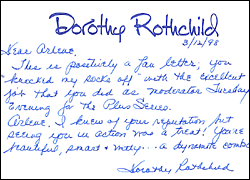 Dorothy Rothchild
3/12/98
Dear Arlene,
This is positively a fan letter; you
knocked my socks off with the excellent
job that you did as moderator Tuesday
Evening for the Plus Series.
Arlene, I knew of your reputation, but
seeing you in action was a treat! You're
beautiful, smart & witty... a dynamite combo.
Dorothy Rothchild